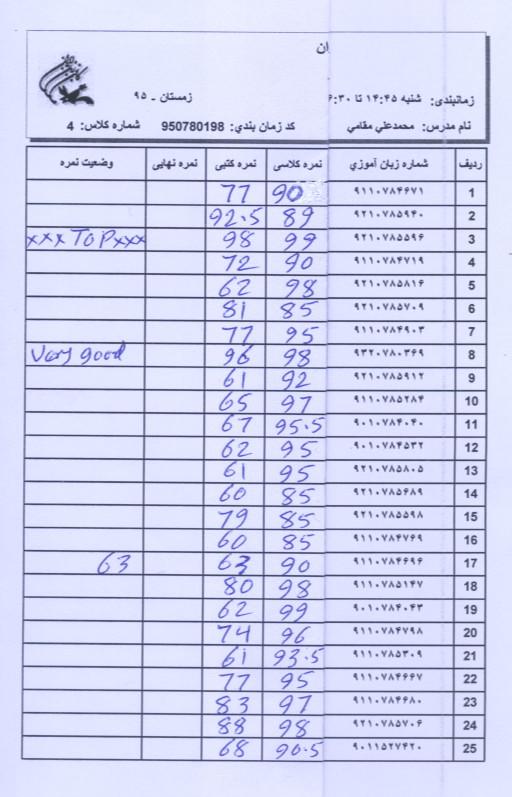 ان
زمانبندی: شنبه ۱۴:۴۵ تا ۶:۳۰ زمستان - ۹۵
نام مدرس: محمدعلي مقامي کد زمان بندي: 950780198 شماره کلاس: 4
ردیف شماره زبان آموزي نمره کلاسی نمره کتبی نمره نهایی وضعیت نمره
1 ۹۱۱۰۷۸۴۶۷۱ 90 77
2 ۹۲۱۰۷۸۵۹۴۰ 89 92.5
3 ۹۲۱۰۷۸۵۵۹۶ 99 98 xxx TOP xxx
4 ۹۱۱۰۷۸۴۷۱۹ 90 72
5 ۹۲۱۰۷۸۵۸۱۶ 98 62
6 ۹۲۱۰۷۸۵۷۰۹ 85 81
7 ۹۱۱۰۷۸۴۹۰۳ 95 77
8 ۹۳۲۰۷۸۰۳۶۹ 98 96 Very good
9 ۹۲۱۰۷۸۵۹۱۲ 92 61
10 ۹۱۱۰۷۸۵۲۸۴ 97 65
11 ۹۰۱۰۷۸۴۰۴۰ 95.5 67
12 ۹۰۱۰۷۸۴۵۳۲ 95 62
13 ۹۲۱۰۷۸۵۸۰۵ 95 61
14 ۹۲۱۰۷۸۵۶۸۹ 85 60
15 ۹۲۱۰۷۸۵۵۹۸ 85 79
16 ۹۱۱۰۷۸۴۷۶۹ 85 60
17 ۹۱۱۰۷۸۴۶۹۶ 90 63 63
18 ۹۱۱۰۷۸۵۱۴۷ 98 80
19 ۹۰۱۰۷۸۴۰۴۳ 99 62
20 ۹۱۱۰۷۸۴۷۹۸ 96 74
21 ۹۱۱۰۷۸۵۳۰۹ 93.5 61
22 ۹۱۱۰۷۸۴۶۶۷ 95 77
23 ۹۱۱۰۷۸۴۶۸۰ 97 83
24 ۹۲۱۰۷۸۵۷۰۶ 98 88
25 ۹۰۱۱۵۲۷۴۲۰ 90.5 68